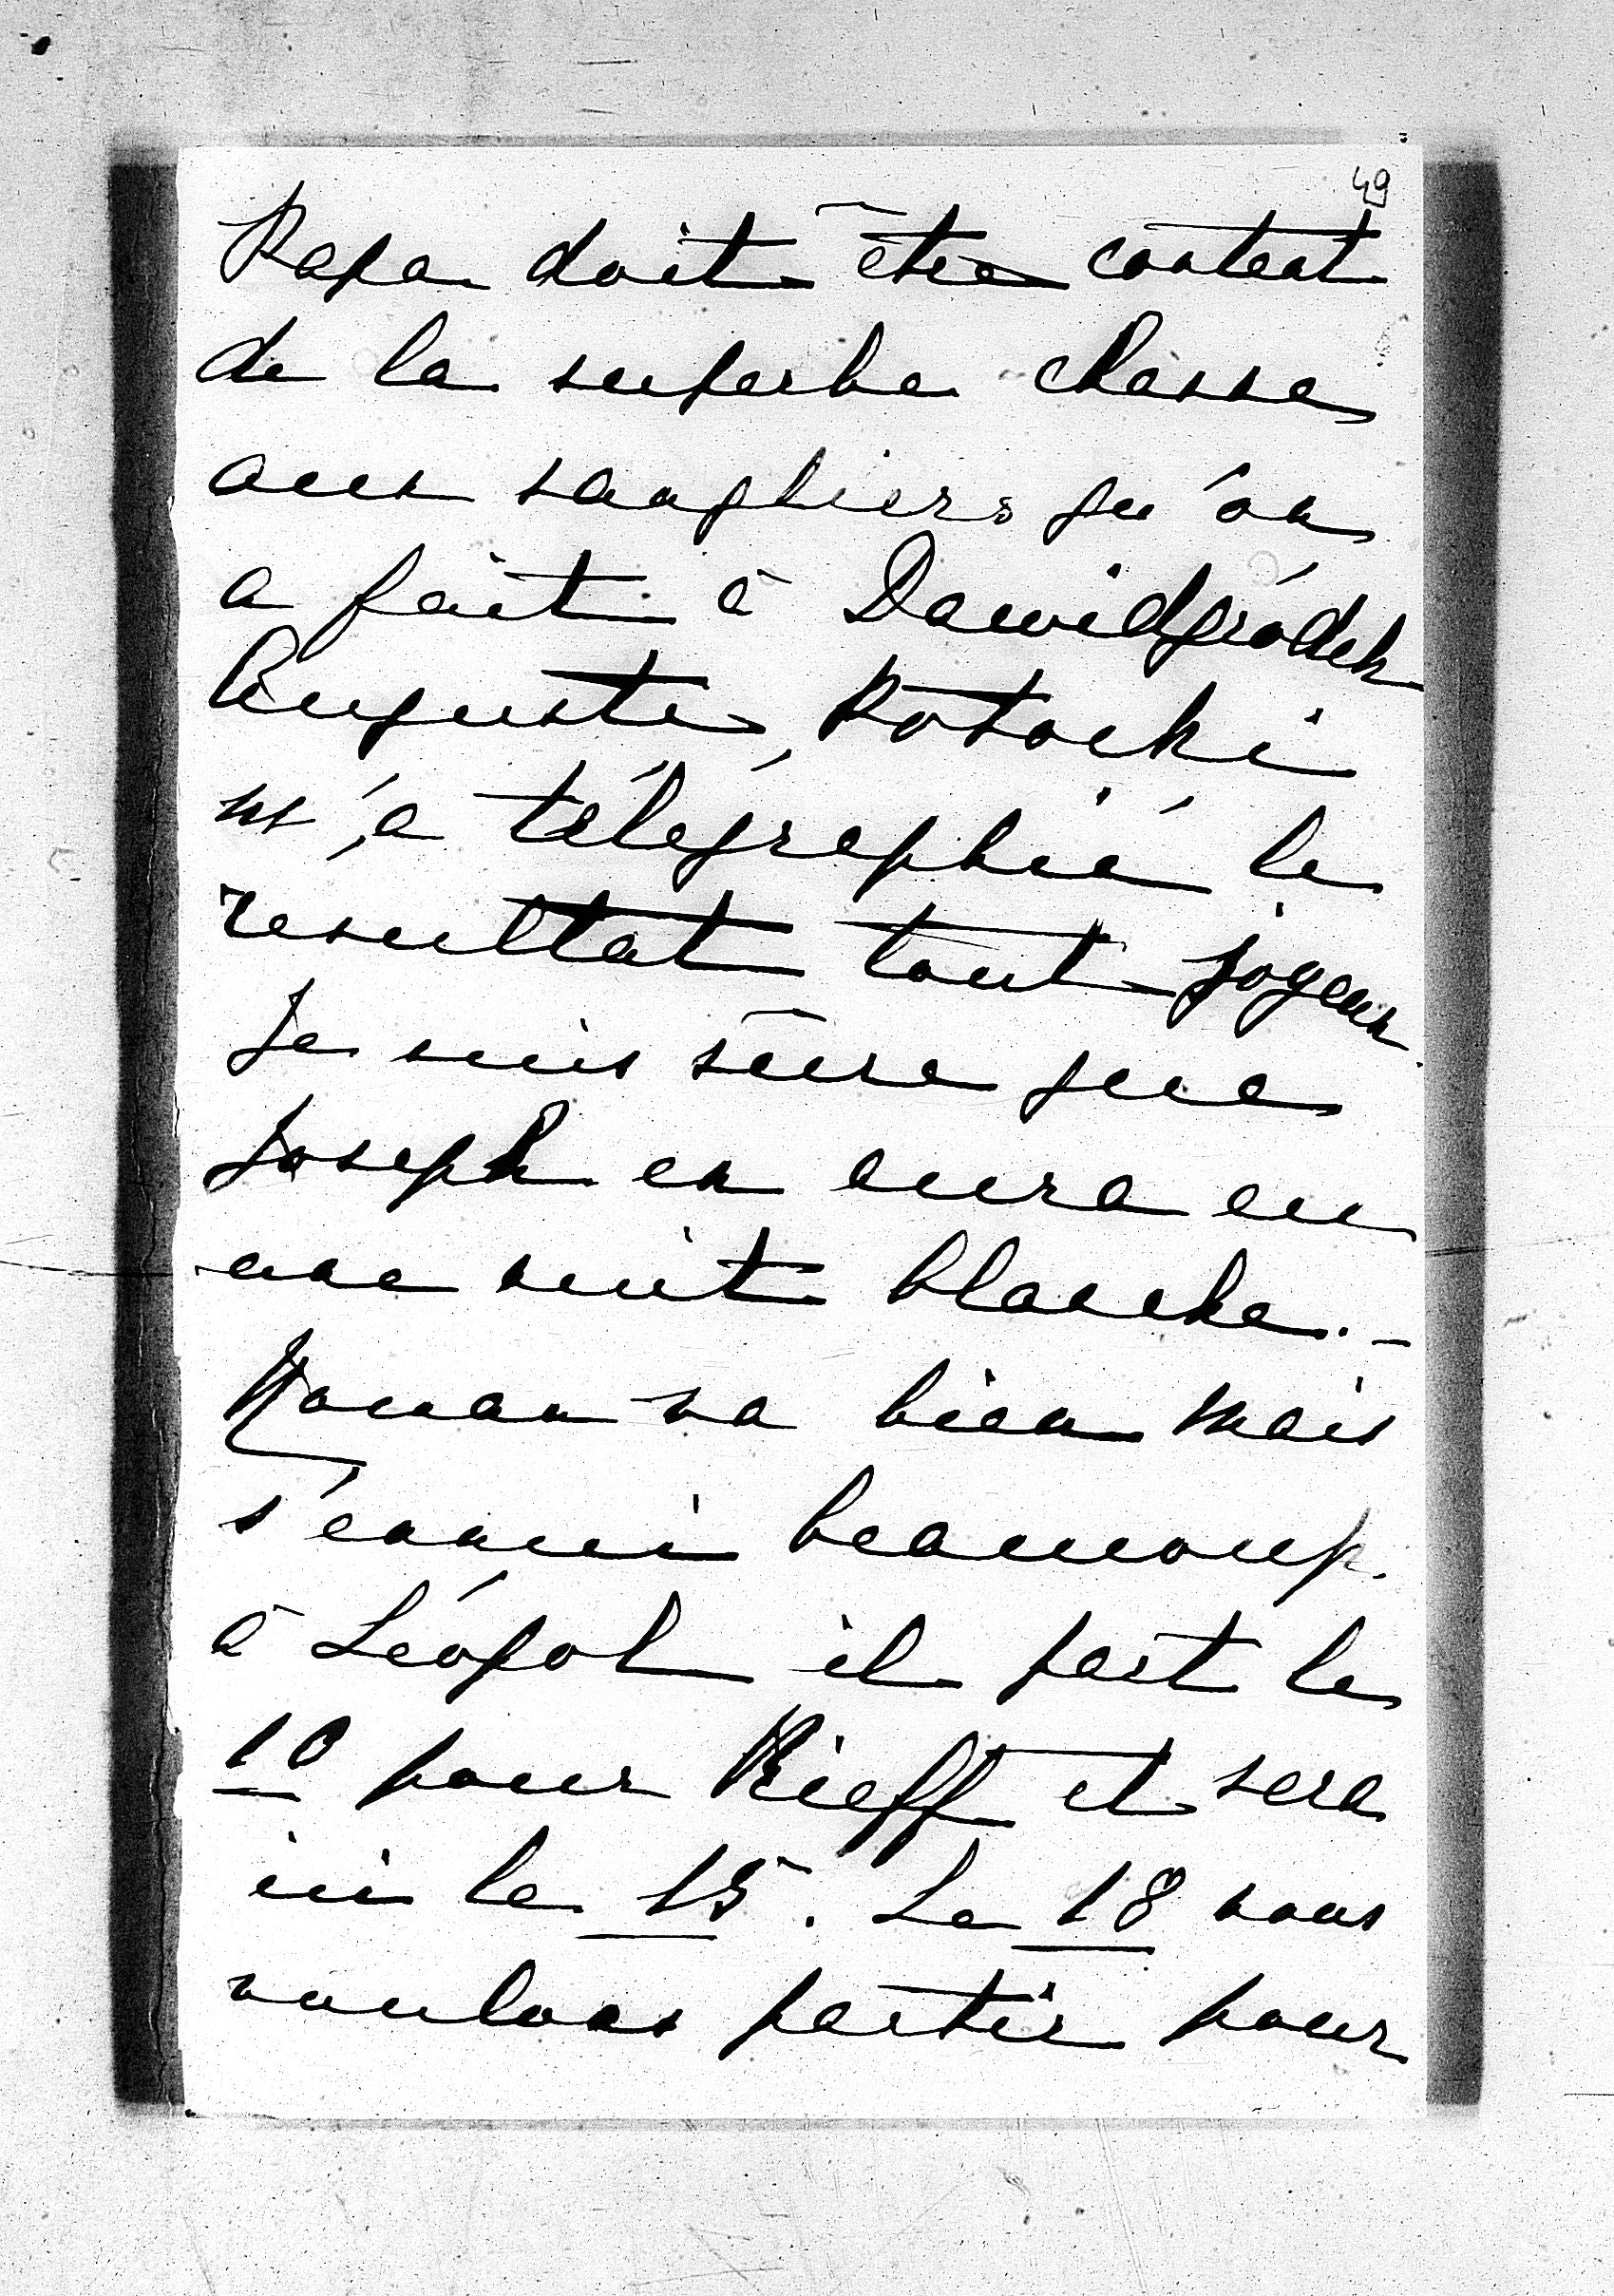 49
Papa doit être content
de la superbe chasse
aux sangliers qu'on
a fait à Dawidgródek
Auguste, Potocki
m'a télégraphié le
resultat tout joyeux.
Je suis sûre que
Joseph en aura eu
une nuit blanche. _
Roman va bien mais
s'ennui beaucoup
à Léopol il part le
10 pour Kieff et sera
ici le 15. Le 18 nous
voulons partir pour